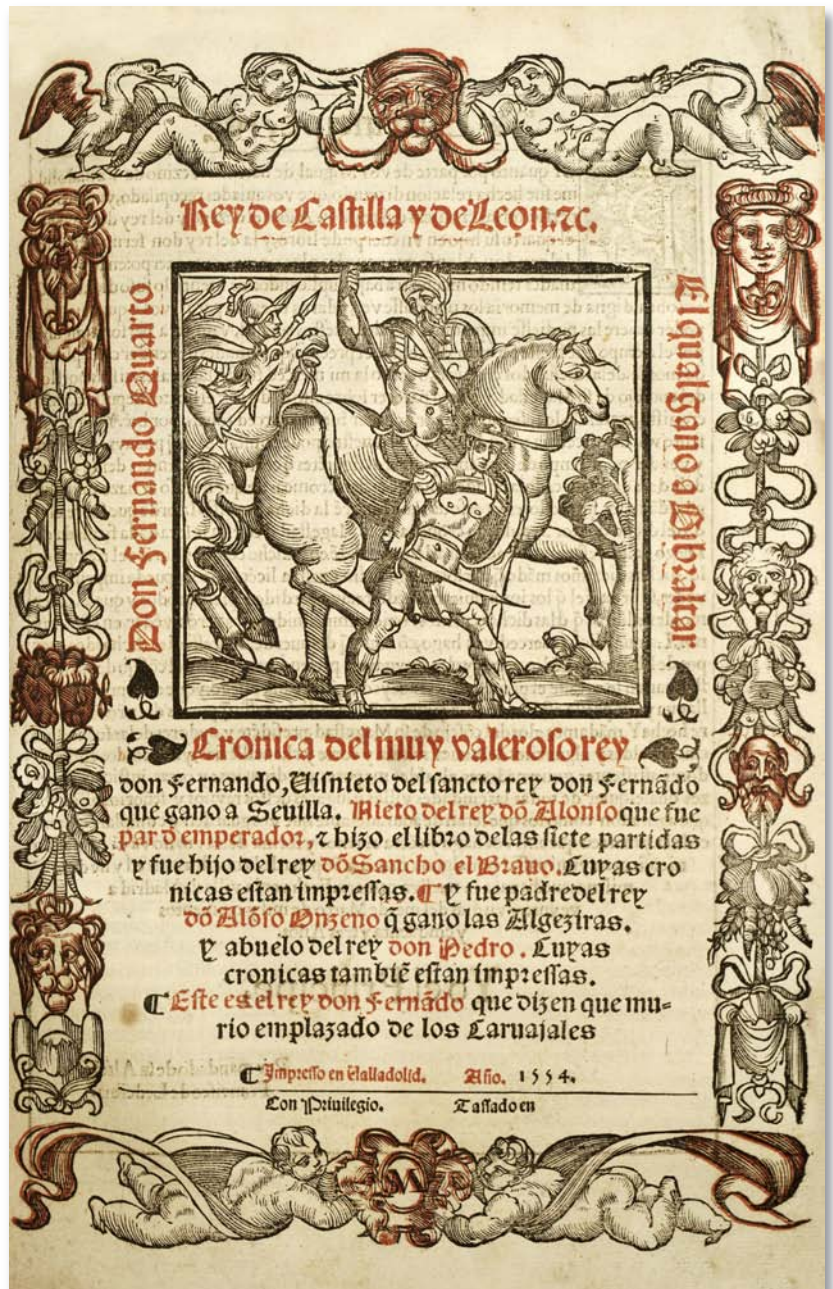 Rey de Castilla y de Leon. ⁊c.
Don Fernando Quarto
El qual gano a Gibraltar
Cronica del muy valeroso rey
don Fernando, Uisnieto del sancto rey don Fernãdo
que gano a Seuilla. Nieto del rey dõ Alonso que fue
par d̃ emperador, ⁊ hizo el libro delas siete partidas
y fue hijo del rey dõ Sancho el Brauo. Cuyas cro
nicas estan impressas. ¶ Y fue padre del rey
dõ Alõso Onzeno q̃ gano las Algeziras.
Y abuelo del rey don Pedro. Cuyas
cronicas tambiẽ estan impressas.
¶ Este es el rey don Fernãdo que dizen que mu-
rio emplazado de los Caruajales
¶ Impresso en Ualladolid. Año. 1554.
Con Priuilegio. Tassado en
M